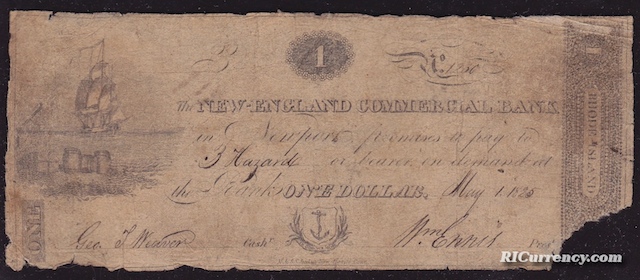 1
No. 1256
The NEW-ENGLAND COMMERCIAL BANK
in Newport promises to pay to
B Hazard or bearer, on demand at
the Bank ONE DOLLAR. May 1. 1825
Geo. T Weaver Cashr.
Wm Ennis Prest.
ONE
1
RHODE ISLAND
RICurrency.com